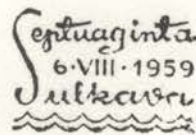 Septuaginta
6·VIII·1959
Sulkava